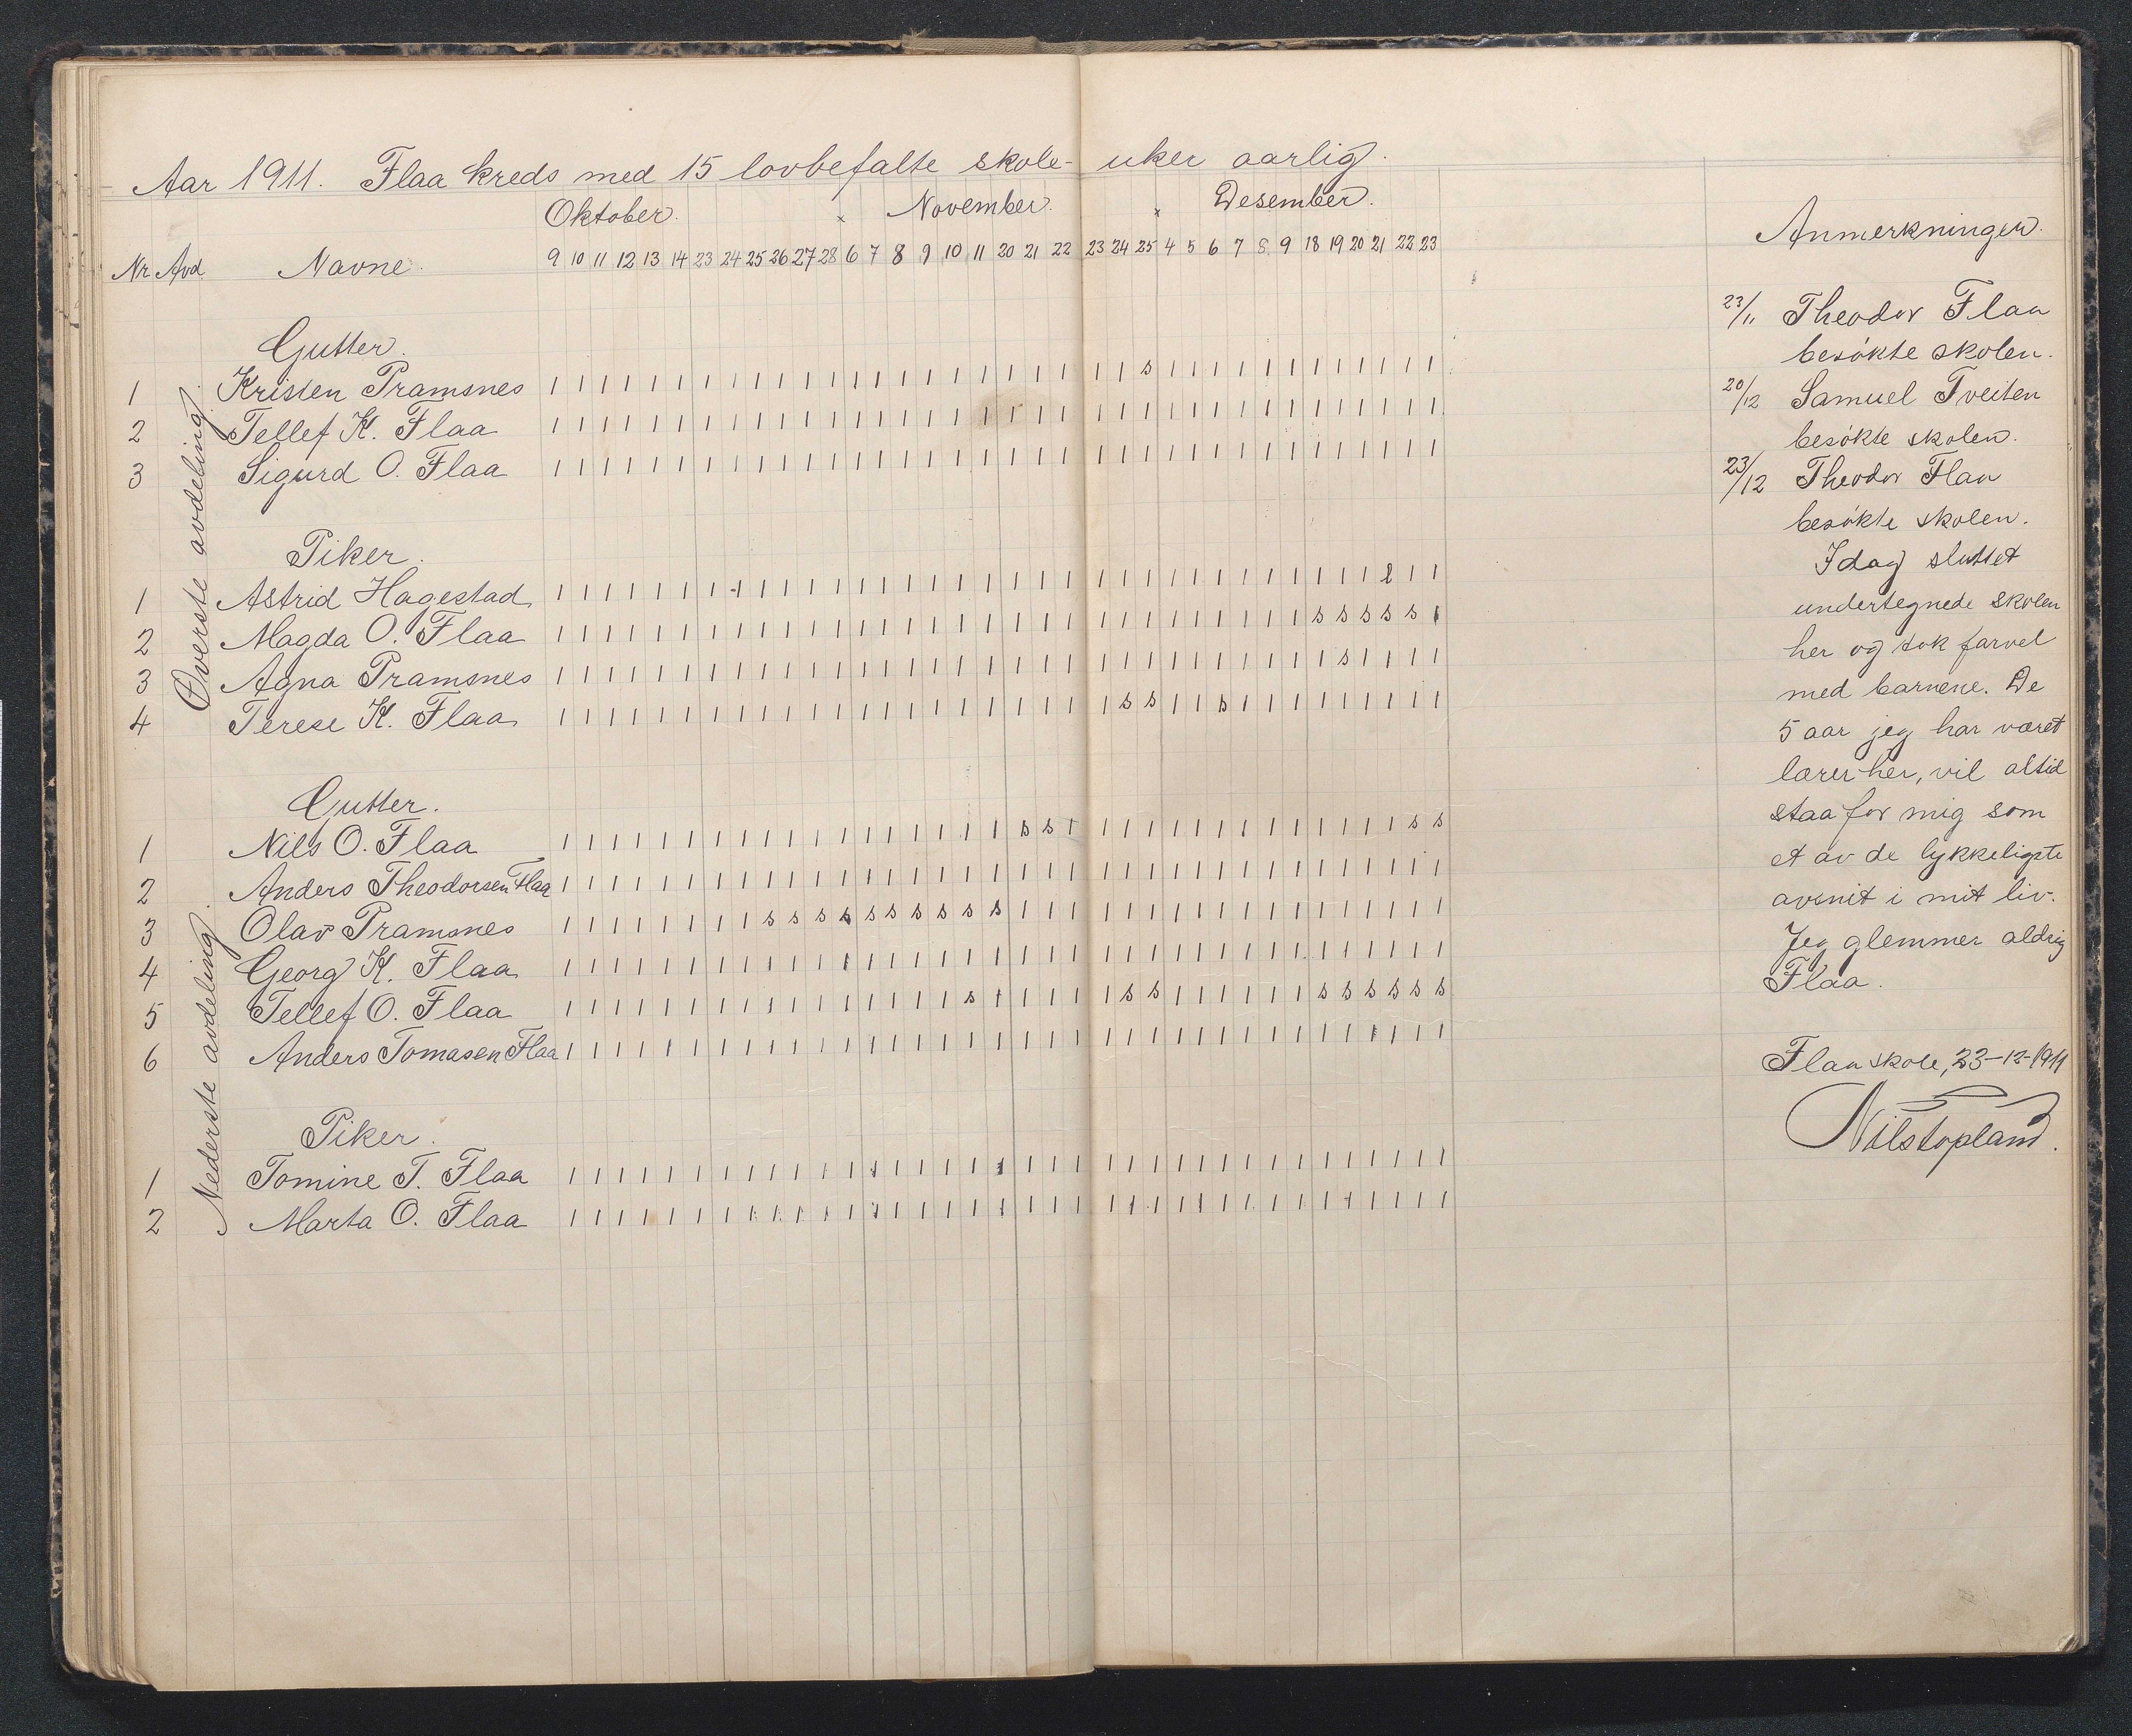 Aar 1911. Flaa kreds med 15 lovbefalte skole- uker aarlig.
Oktober. x November. x Desember.
Nr. Avd. Navne. 9 10 11 12 13 14 23 24 25 26 27 28 6 7 8 9 10 11 20 21 22 23 24 25 4 5 6 7 8 9 18 19 20 21 22 23
Øverste avdeling.
Gutter.
1 Kristen Pramsnes 1 1 1 1 1 1 1 1 1 1 1 1 1 1 1 1 1 1 1 1 1 1 1 s 1 1 1 1 1 1 1 1 1 1 1 1
2 Tellef K. Flaa 1 1 1 1 1 1 1 1 1 1 1 1 1 1 1 1 1 1 1 1 1 1 1 1 1 1 1 1 1 1 1 1 1 1 1 1
3 Sigurd O. Flaa 1 1 1 1 1 1 1 1 1 1 1 1 1 1 1 1 1 1 1 1 1 1 1 1 1 1 1 1 1 1 1 1 1 1 1 1
Piker.
1 Astrid Hagestad 1 1 1 1 1 1 1 1 1 1 1 1 1 1 1 1 1 1 1 1 1 1 1 1 1 1 1 1 1 1 1 1 1 2 1 1
2 Magda O. Flaa 1 1 1 1 1 1 1 1 1 1 1 1 1 1 1 1 1 1 1 1 1 1 1 1 1 1 1 1 1 1 s s s s s 1
3 Agna Pramsnes 1 1 1 1 1 1 1 1 1 1 1 1 1 1 1 1 1 1 1 1 1 1 1 1 1 1 1 1 1 1 1 s 1 1 1 1
4 Terese K. Flaa 1 1 1 1 1 1 1 1 1 1 1 1 1 1 1 1 1 1 1 1 1 1 s s 1 1 s 1 1 1 1 1 1 1 1 1
Nederste avdeling.
Gutter.
1 Nils O. Flaa 1 1 1 1 1 1 1 1 1 1 1 1 1 1 1 1 1 1 s s 1 1 1 1 1 1 1 1 1 1 1 1 1 1 s s
2 Anders Theodorsen Flaa 1 1 1 1 1 1 1 1 1 1 1 1 1 1 1 1 1 1 1 1 1 1 1 1 1 1 1 1 1 1 1 1 1 1 1 1
3 Olav Pramsnes 1 1 1 1 1 1 1 1 s s s s s s s s s s 1 1 1 1 1 1 1 1 1 1 1 1 1 1 1 1 1 1
4 Georg K. Flaa 1 1 1 1 1 1 1 1 1 1 1 1 1 1 1 1 1 1 1 1 1 1 1 1 1 1 1 1 1 1 1 1 1 1 1 1
5 Tellef O. Flaa 1 1 1 1 1 1 1 1 1 1 1 1 1 1 1 1 s 1 1 1 1 1 s s 1 1 1 1 1 1 s s s s s s
6 Anders Tomasen Flaa 1 1 1 1 1 1 1 1 1 1 1 1 1 1 1 1 1 1 1 1 1 1 1 1 1 1 1 1 1 1 1 1 1 1 1 1
Piker.
1 Tomine T. Flaa 1 1 1 1 1 1 1 1 1 1 1 1 1 1 1 1 1 1 1 1 1 1 1 1 1 1 1 1 1 1 1 1 1 1 1 1
2 Marta O. Flaa 1 1 1 1 1 1 1 1 1 1 1 1 1 1 1 1 1 1 1 1 1 1 1 1 1 1 1 1 1 1 1 1 1 1 1 1
Anmerkninger.
23/11 Theodor Flaa
besøkte skolen.
20/12 Samuel Tveiten
besøkte skolen.
23/12 Theodor Flaa
besøkte skolen.
Idag sluttet
undertegnede skolen
her og tok farvel
med barnene. De
5 aar jeg har været
lærer her, vil altid
staa for mig som
et av de lykkeligste
avsnit i mit liv.
Jeg glemmer aldrig
Flaa.
Flaa skole, 23-12-1911
Nils Topland.